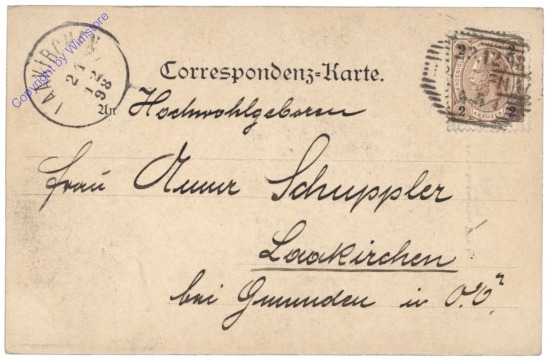 Copyright by Winstore
LAAKIRCHEN
21
12
98
Correspondenz-Karte.
An Hochwohlgeboren
Frau Anna Schuppler
Laakirchen
bei Gmunden in O.Ö.
2 2
2 2